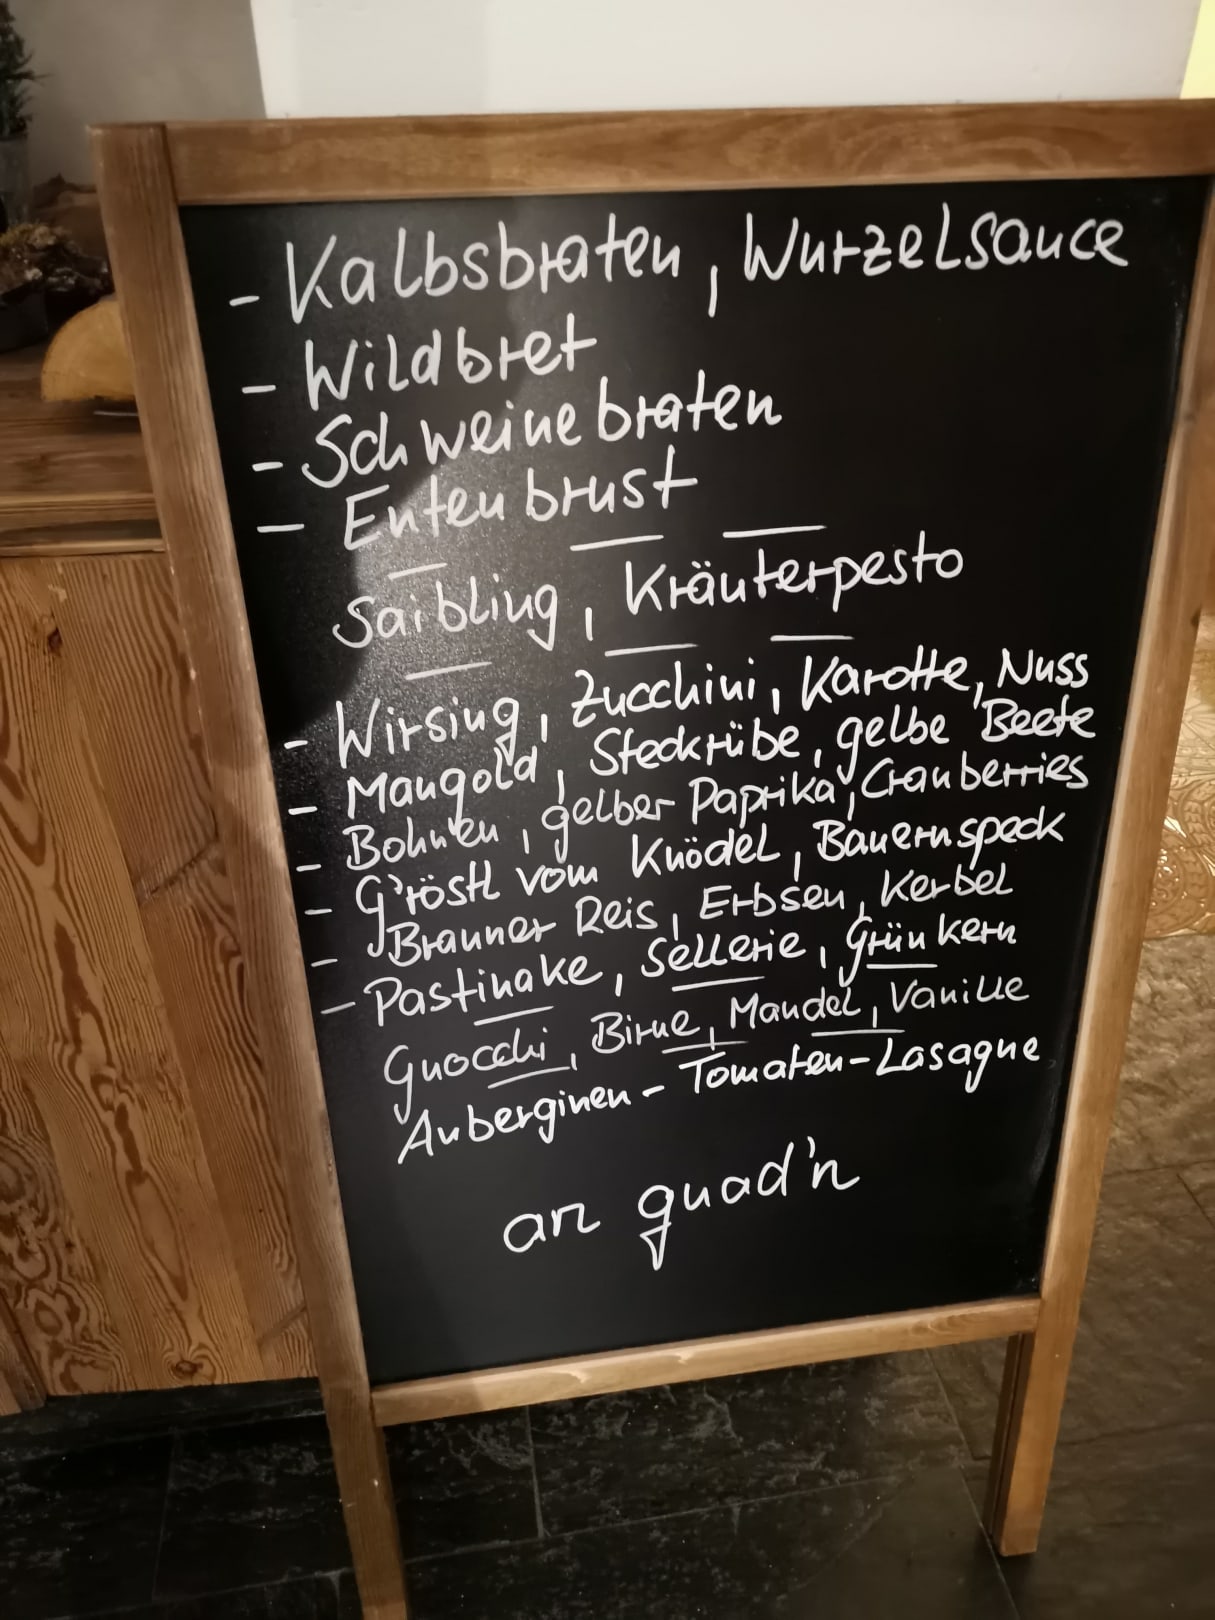 - Kalbsbraten, Wurzelsauce
- Wildbret
- Schweinebraten
- Entenbrust
Saibling, Kräuterpesto
- Wirsing, Zucchini, Karotte, Nuss
- Mangold, Steckrübe, gelbe Beete
- Bohnen, gelber Paprika, Cranberries
- G'röstl vom Knödel, Bauernspeck
- Brauner Reis, Erbsen, Kerbel
- Pastinake, Sellerie, Grünkern
Gnocchi, Birne, Mandel, Vanille
Auberginen-Tomaten-Lasagne
an guad'n